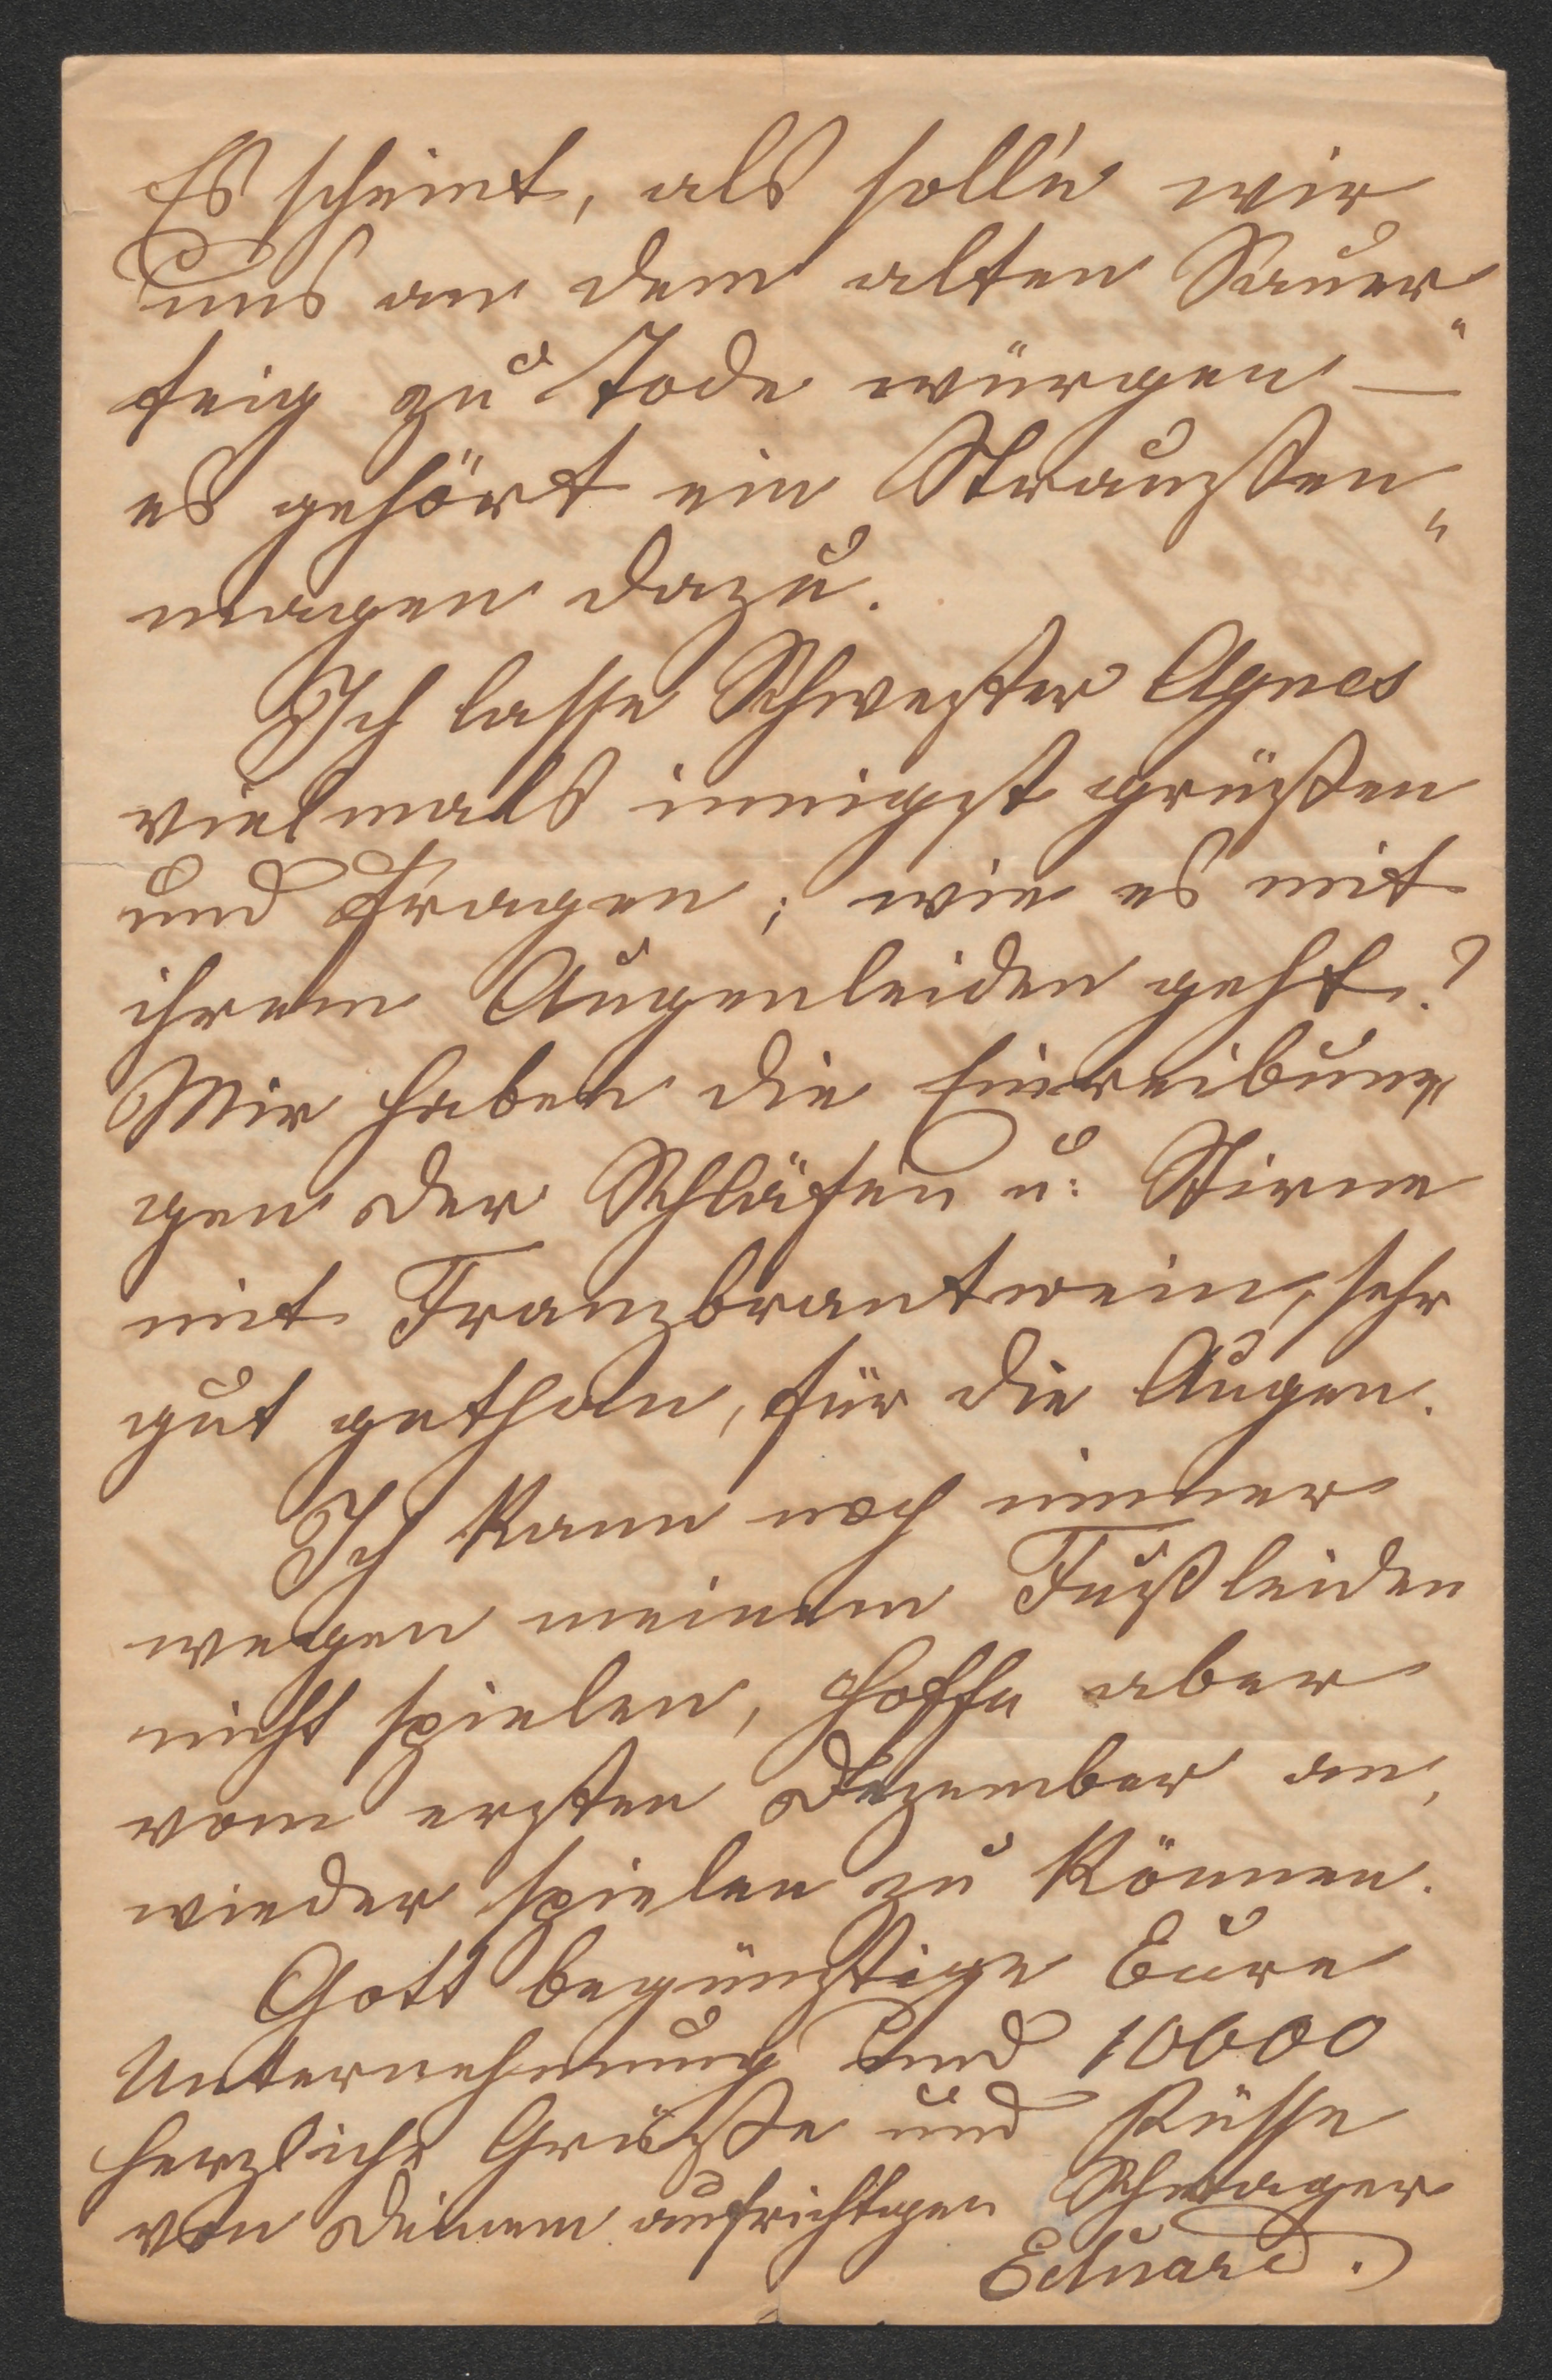 Es scheint, als soll'n wir
uns an dem alten Sauer-
teig zu Tode würgen —
es gehört ein Straußen-
magen dazu.
Ich lasse Schwester Agnes
vielmals innigst grüßen
und fragen; wie es mit
ihrem Augenleiden geht?
Mir haben die Einreibun-
gen der Schläfen u: Stirne
mit Franzbrantwein, sehr
gut gethan, für die Augen.
Ich kann noch immer
wegen meinem Fußleiden
nicht spielen, hoffe aber
vom ersten Dezember an,
wieder spielen zu können.
Gott begünstige Eure
Unternehmung und 10000
herzliche Grüße und Küsse
von Deinem aufrichtigen Schwager
Eduard.